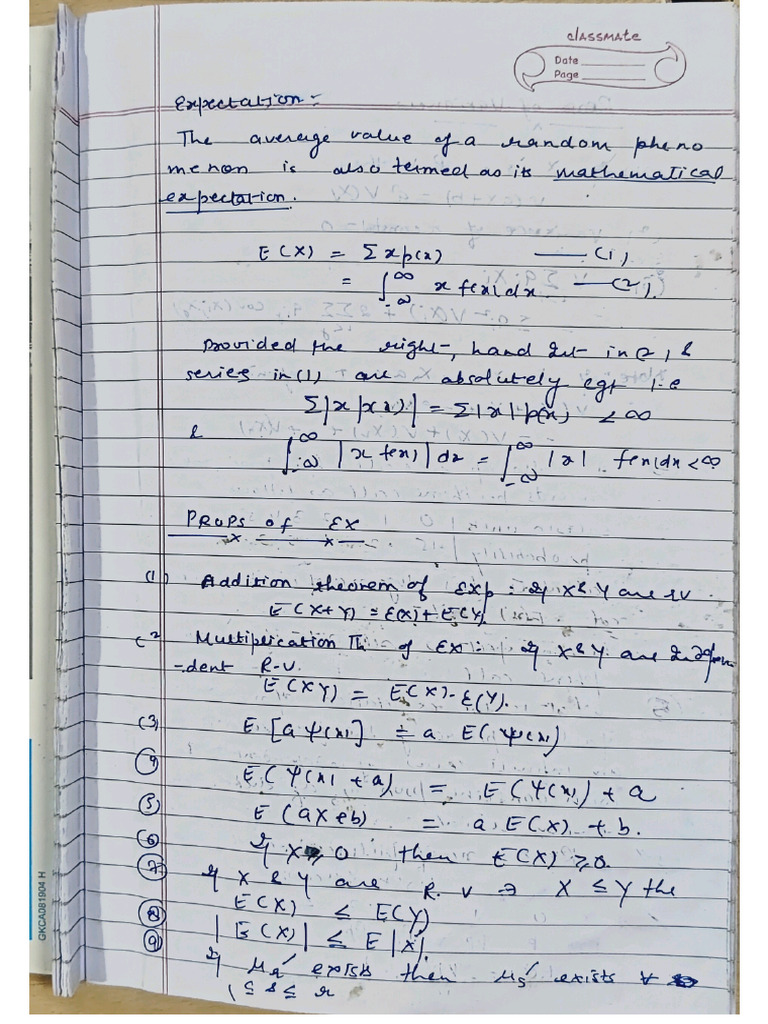 classmate
Date
Page
Expectation :-
The average value of a random pheno
menon is also termed as its mathematical
expectation.
E(X) = Σ x p(x) —— (1)
= ∫_{-∞}^{∞} x f(x) dx —— (2).
Provided the right, hand Int in 2, &
series in (1) are absolutely cgt i.e
Σ|x p(x)| = Σ|x| p(x) < ∞
&
∫_{-∞}^{∞} |x f(x)| dx = ∫_{-∞}^{∞} |x| f(x) dx < ∞
PROPS of EX
(1) Addition theorem of Exp : If X & Y are r.v
E(X+Y) = E(X) + E(Y)
(2 Multiplication Th of Ex : If X & Y are Indepen
-dent R.V.
E(XY) = E(X) - E(Y).
(3) E[a ψ(x)] = a E(ψ(x))
④ E(ψ(x) + a) = E(ψ(x)) + a
⑤ E(aX+b) = a E(X) + b.
⑥ If X ≥ 0 then E(X) ≥ 0
⑦ If X & Y are R.V ∋ X ≤ Y the
E(X) ≤ E(Y)
⑧ |E(X)| ≤ E|X|.
⑨ If μr' exists then μs' exists ∀
1 ≤ s ≤ r
GKCA081904 H